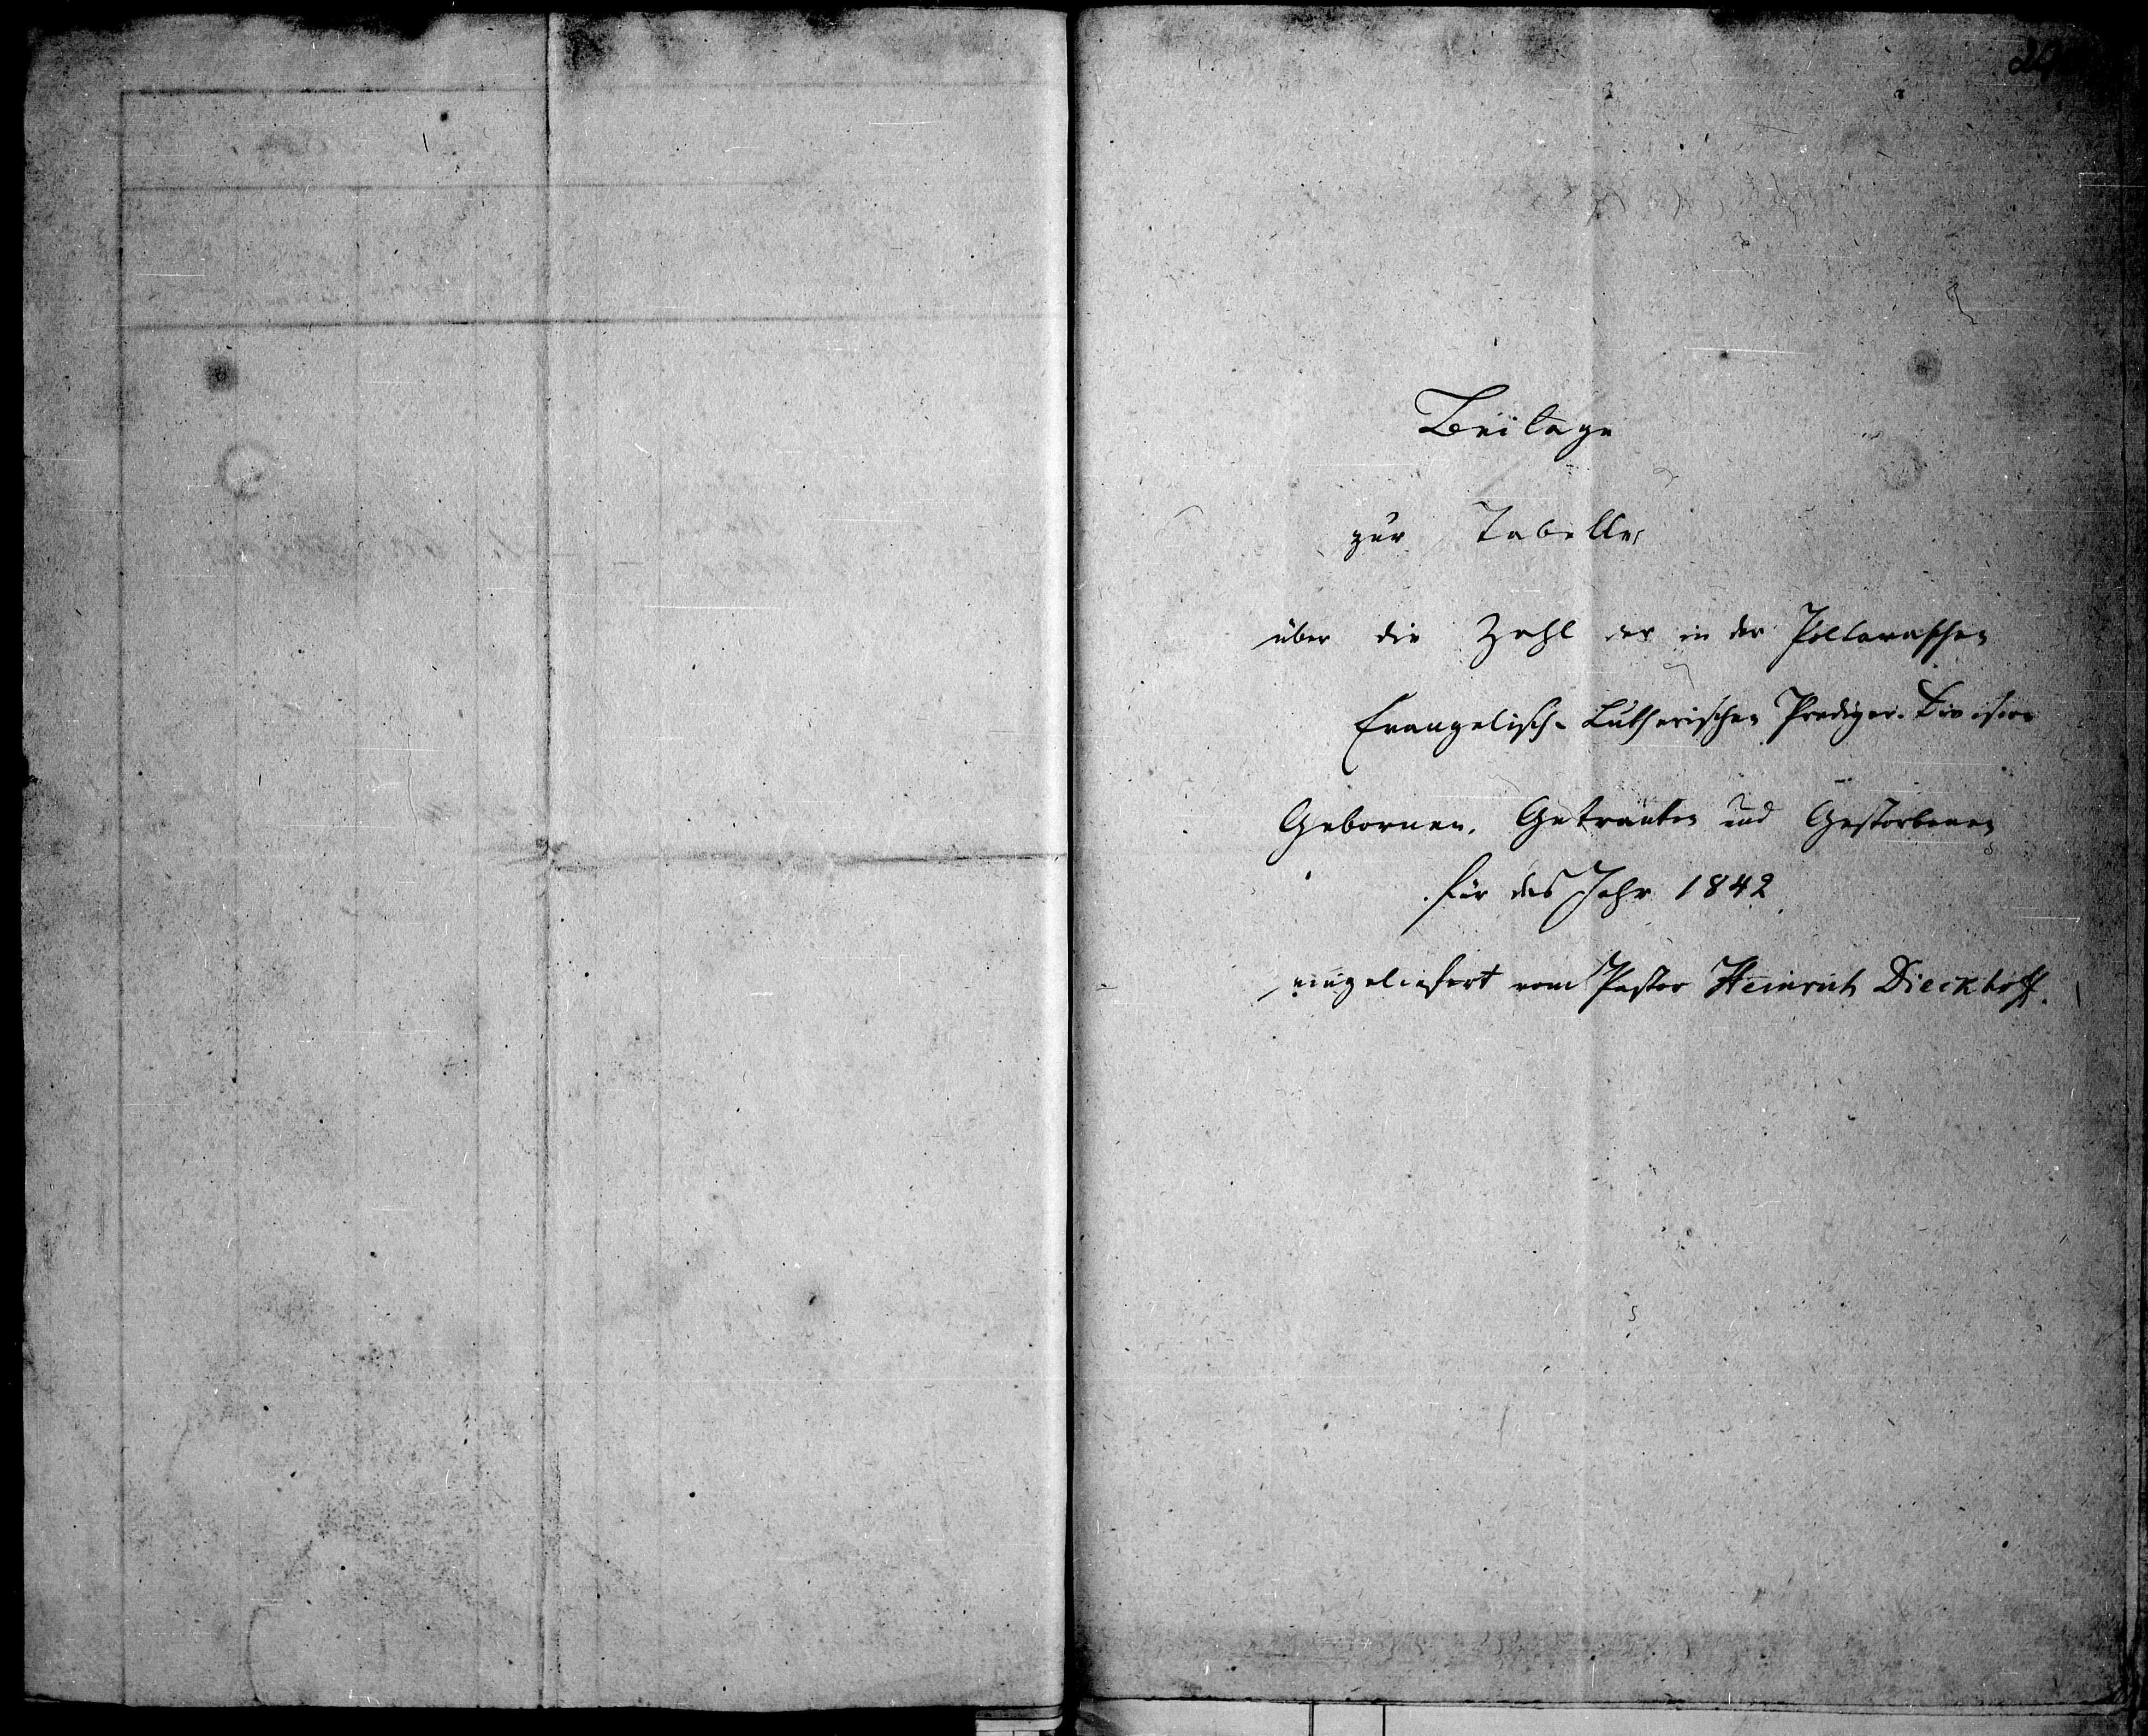 Beilage
zur Tabelle
über die Zahl der in der Poltawaschen
Evangelisch-Lutherischen Prediger-Division
Gebornen, Getrauten und Gestorbenen
für das Jahr 1842
eingeliefert vom Pastor Heinrich Dieckhoff.